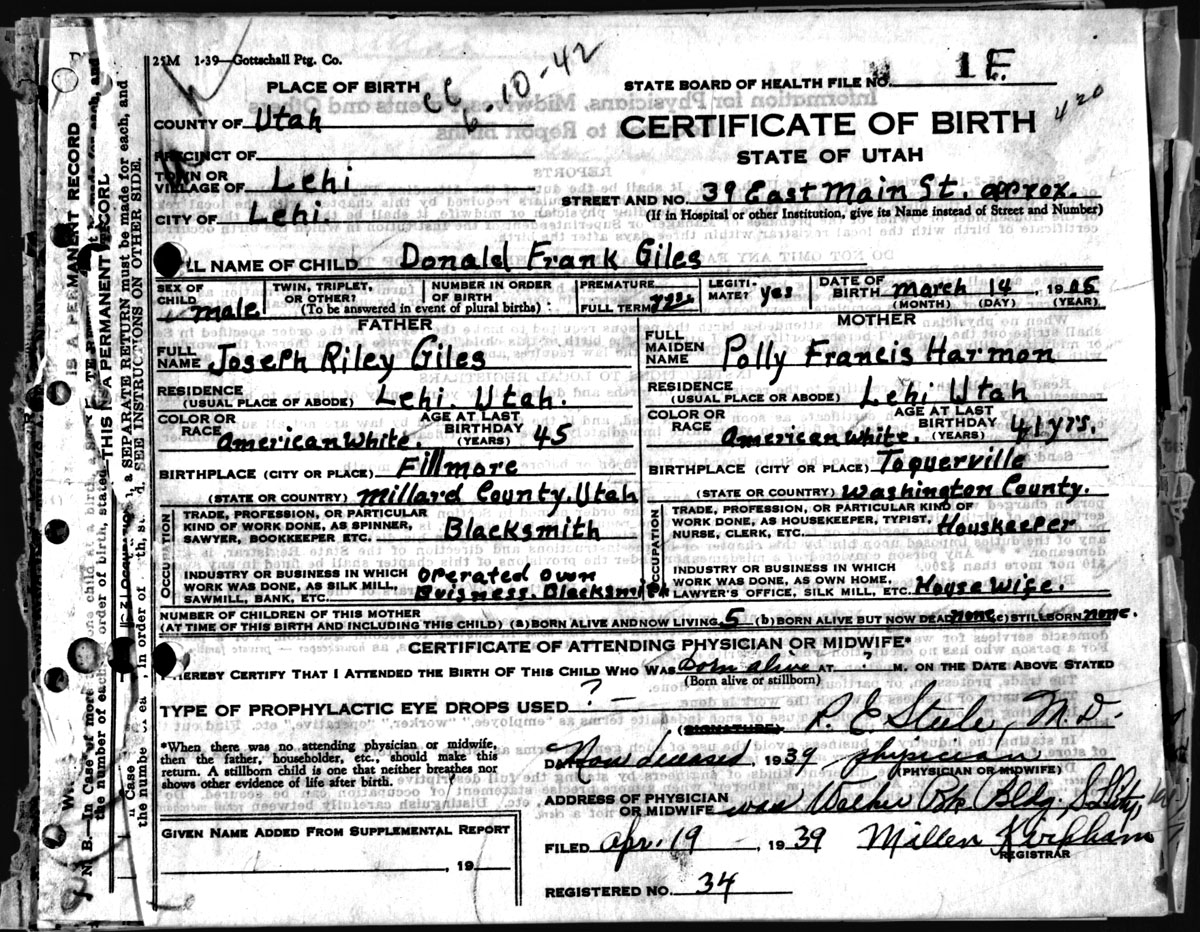 25M 1-39—Gottschall Ptg. Co.
6-10-42
PLACE OF BIRTH
STATE BOARD OF HEALTH FILE NO. 1 F.
420
COUNTY OF Utah
CERTIFICATE OF BIRTH
PRECINCT OF
STATE OF UTAH
TOWN OR
VILLAGE OF Lehi
STREET AND NO. 39 East Main St. approx.
CITY OF Lehi.
(If in Hospital or other Institution, give its Name instead of Street and Number)
LL NAME OF CHILD Donald Frank Giles
SEX OF CHILD male
TWIN, TRIPLET, OR OTHER?
NUMBER IN ORDER OF BIRTH
(To be answered in event of plural births)
PREMATURE
FULL TERM yes
LEGITI- MATE? yes
DATE OF BIRTH March 14, 1905
(MONTH) (DAY) (YEAR)
FATHER
FULL NAME Joseph Riley Giles
RESIDENCE (USUAL PLACE OF ABODE) Lehi. Utah.
COLOR OR RACE American White. AGE AT LAST BIRTHDAY (YEARS) 45
BIRTHPLACE (CITY OR PLACE) Fillmore
(STATE OR COUNTRY) Millard County. Utah
OCCUPATION
TRADE, PROFESSION, OR PARTICULAR
KIND OF WORK DONE, AS SPINNER,
SAWYER, BOOKKEEPER ETC. Blacksmith
INDUSTRY OR BUSINESS IN WHICH
WORK WAS DONE, AS SILK MILL,
SAWMILL, BANK, ETC. Operated own Buisness. Blacksmith
MOTHER
FULL MAIDEN NAME Polly Francis Harmon
RESIDENCE (USUAL PLACE OR ABODE) Lehi Utah
COLOR OR RACE American White. AGE AT LAST BIRTHDAY (YEARS) 41 yrs.
BIRTHPLACE (CITY OR PLACE) Toquerville
(STATE OR COUNTRY) Washington County.
OCCUPATION
TRADE, PROFESSION, OR PARTICULAR KIND OF
WORK DONE, AS HOUSEKEEPER, TYPIST,
NURSE, CLERK, ETC. Houskeeper
INDUSTRY OR BUSINESS IN WHICH
WORK WAS DONE, AS OWN HOME,
LAWYER'S OFFICE, SILK MILL, ETC. House Wife.
NUMBER OF CHILDREN OF THIS MOTHER
(AT TIME OF THIS BIRTH AND INCLUDING THIS CHILD) (a) BORN ALIVE AND NOW LIVING 5 (b) BORN ALIVE BUT NOW DEAD none (c) STILLBORN none.
CERTIFICATE OF ATTENDING PHYSICIAN OR MIDWIFE*
HEREBY CERTIFY THAT I ATTENDED THE BIRTH OF THIS CHILD WHO WAS born alive AT ? M. ON THE DATE ABOVE STATED
(Born alive or stillborn)
TYPE OF PROPHYLACTIC EYE DROPS USED ? —
R. E. Steele, M.D.
(SIGNATURE)
*When there was no attending physician or midwife,
then the father, householder, etc., should make this
return. A stillborn child is one that neither breathes nor
shows other evidence of life after birth.
Now deceased, 1939 physician
(PHYSICIAN OR MIDWIFE)
ADDRESS OF PHYSICIAN
OR MIDWIFE was Walker Bk Bldg., S L City
GIVEN NAME ADDED FROM SUPPLEMENTAL REPORT
, 19
FILED Apr. 19, 1939
REGISTRAR
REGISTERED NO. 34
THIS IS A PERMANENT RECORD
IS A PERMANENT RECORD
a SEPARATE RETURN must be made for each, and
SEE INSTRUCTIONS ON OTHER SIDE.
N. B.—In Case of more